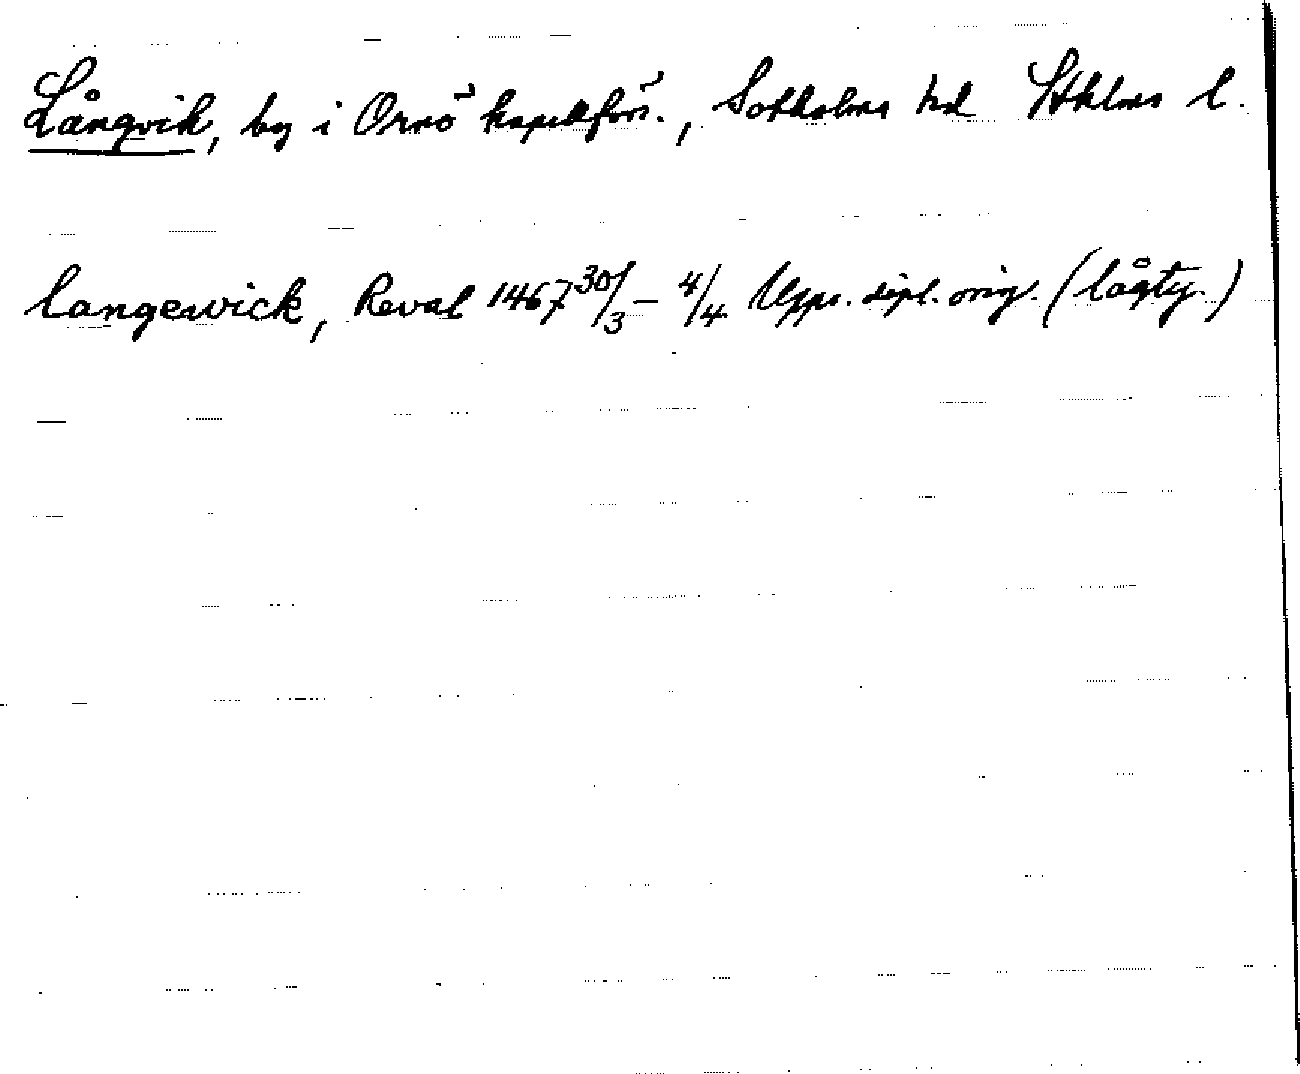 Långvik, by i Ornö kapellförs., Sotholms hd Sthlms l.
langewick, Reval 1467 30/3 – 4/4 Upps. dipl. orig. (lågty.)